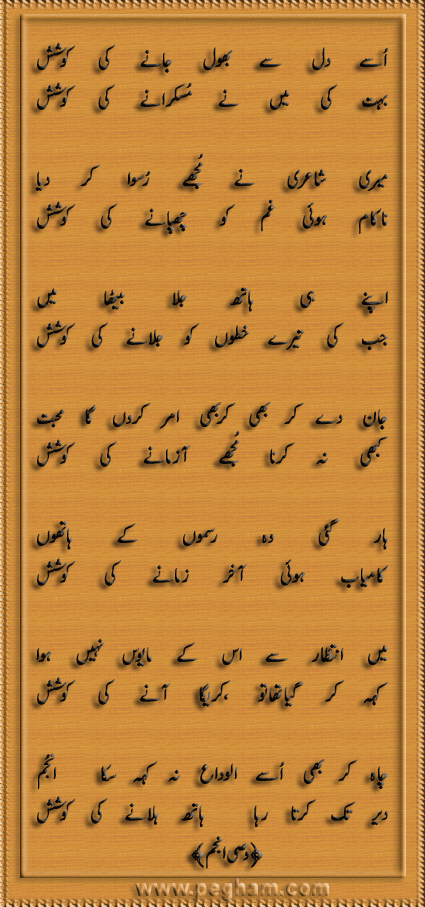 اُسے دل سے بھول جانے کی کوشش
بہت کی میں نے مُسکرانے کی کوشش
میری شاعری نے مُجھے رُسوا کر دیا
ناکام ہوئی غم کو چھپانے کی کوشش
اپنے ہی ہاتھ جلا بیٹھا میں
جب کی تیرے خطوں کو جلانے کی کوشش
جان دے کر بھی کربھی امر کردوں گا محبت
کبھی نہ کرنا مُجھے آزمانے کی کوشش
ہار گئی وہ رسموں کے ہاتھوں
کامیاب ہوئی آخر زمانے کی کوشش
میں انتظار سے اس کے مایوس نہیں ہوا
کہہ کر گیاتھاتو ،کریگا آنے کی کوشش
چاہ کر بھی اُسے الوداع نہ کہہ سکا انجم
دیر تک کرتا رہا ہاتھ ہلانے کی کوشش
﴿وصی انجم﴾
www.pegham.com